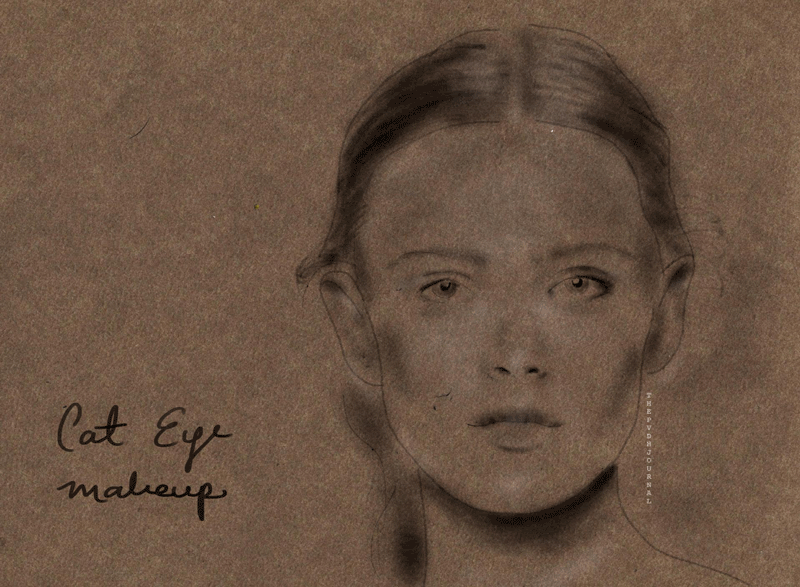 Cat Eye
makeup
THEPVDHJOURNAL